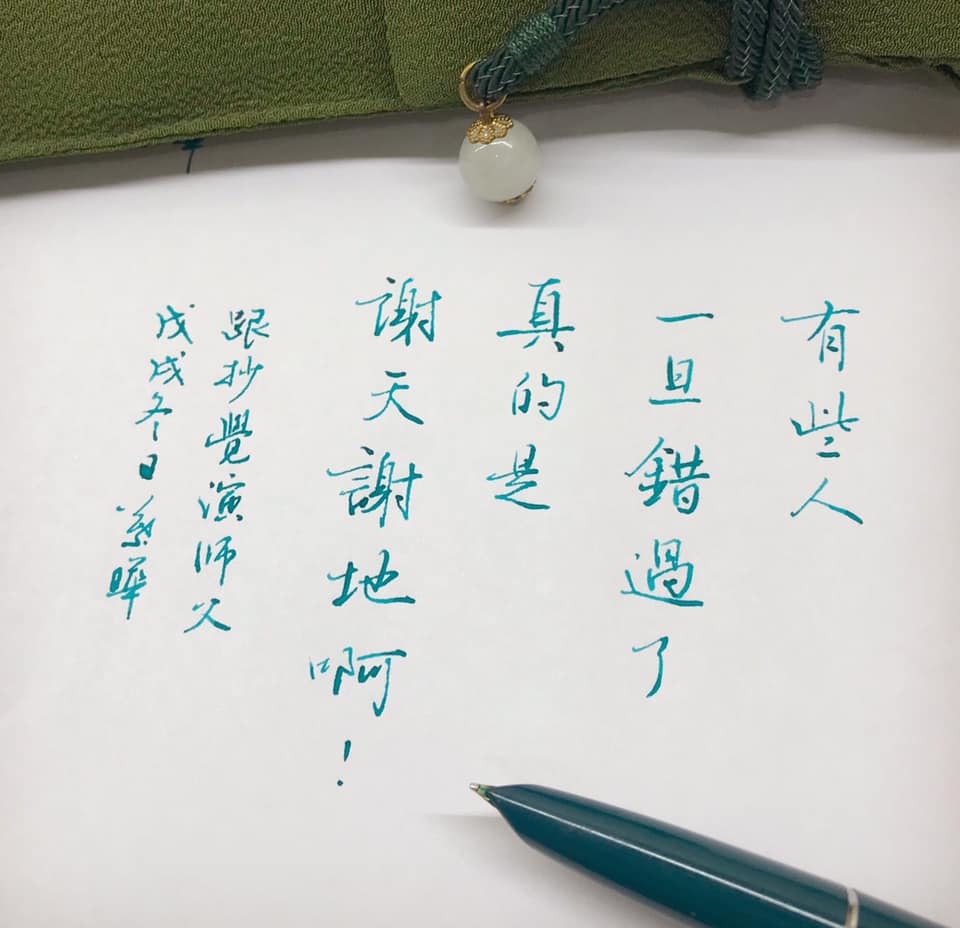 有些人
一旦錯過了
真的是
謝天謝地啊!
跟抄覺演师父
戊戌冬日 曄